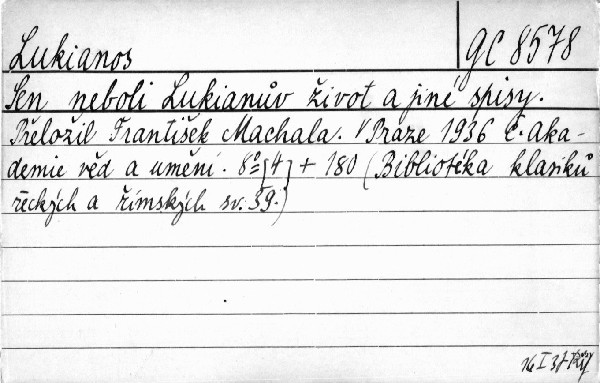 Lukianos GC 8578
Sen neboli Lukianův život a jiné spisy.
Přeložil František Machala. V Praze 1936 Č. aka-
demie věd a umění. 8° [4] + 180 (Bibliotéka klasiků
řeckých a římských sv. 39.)
16 I 37